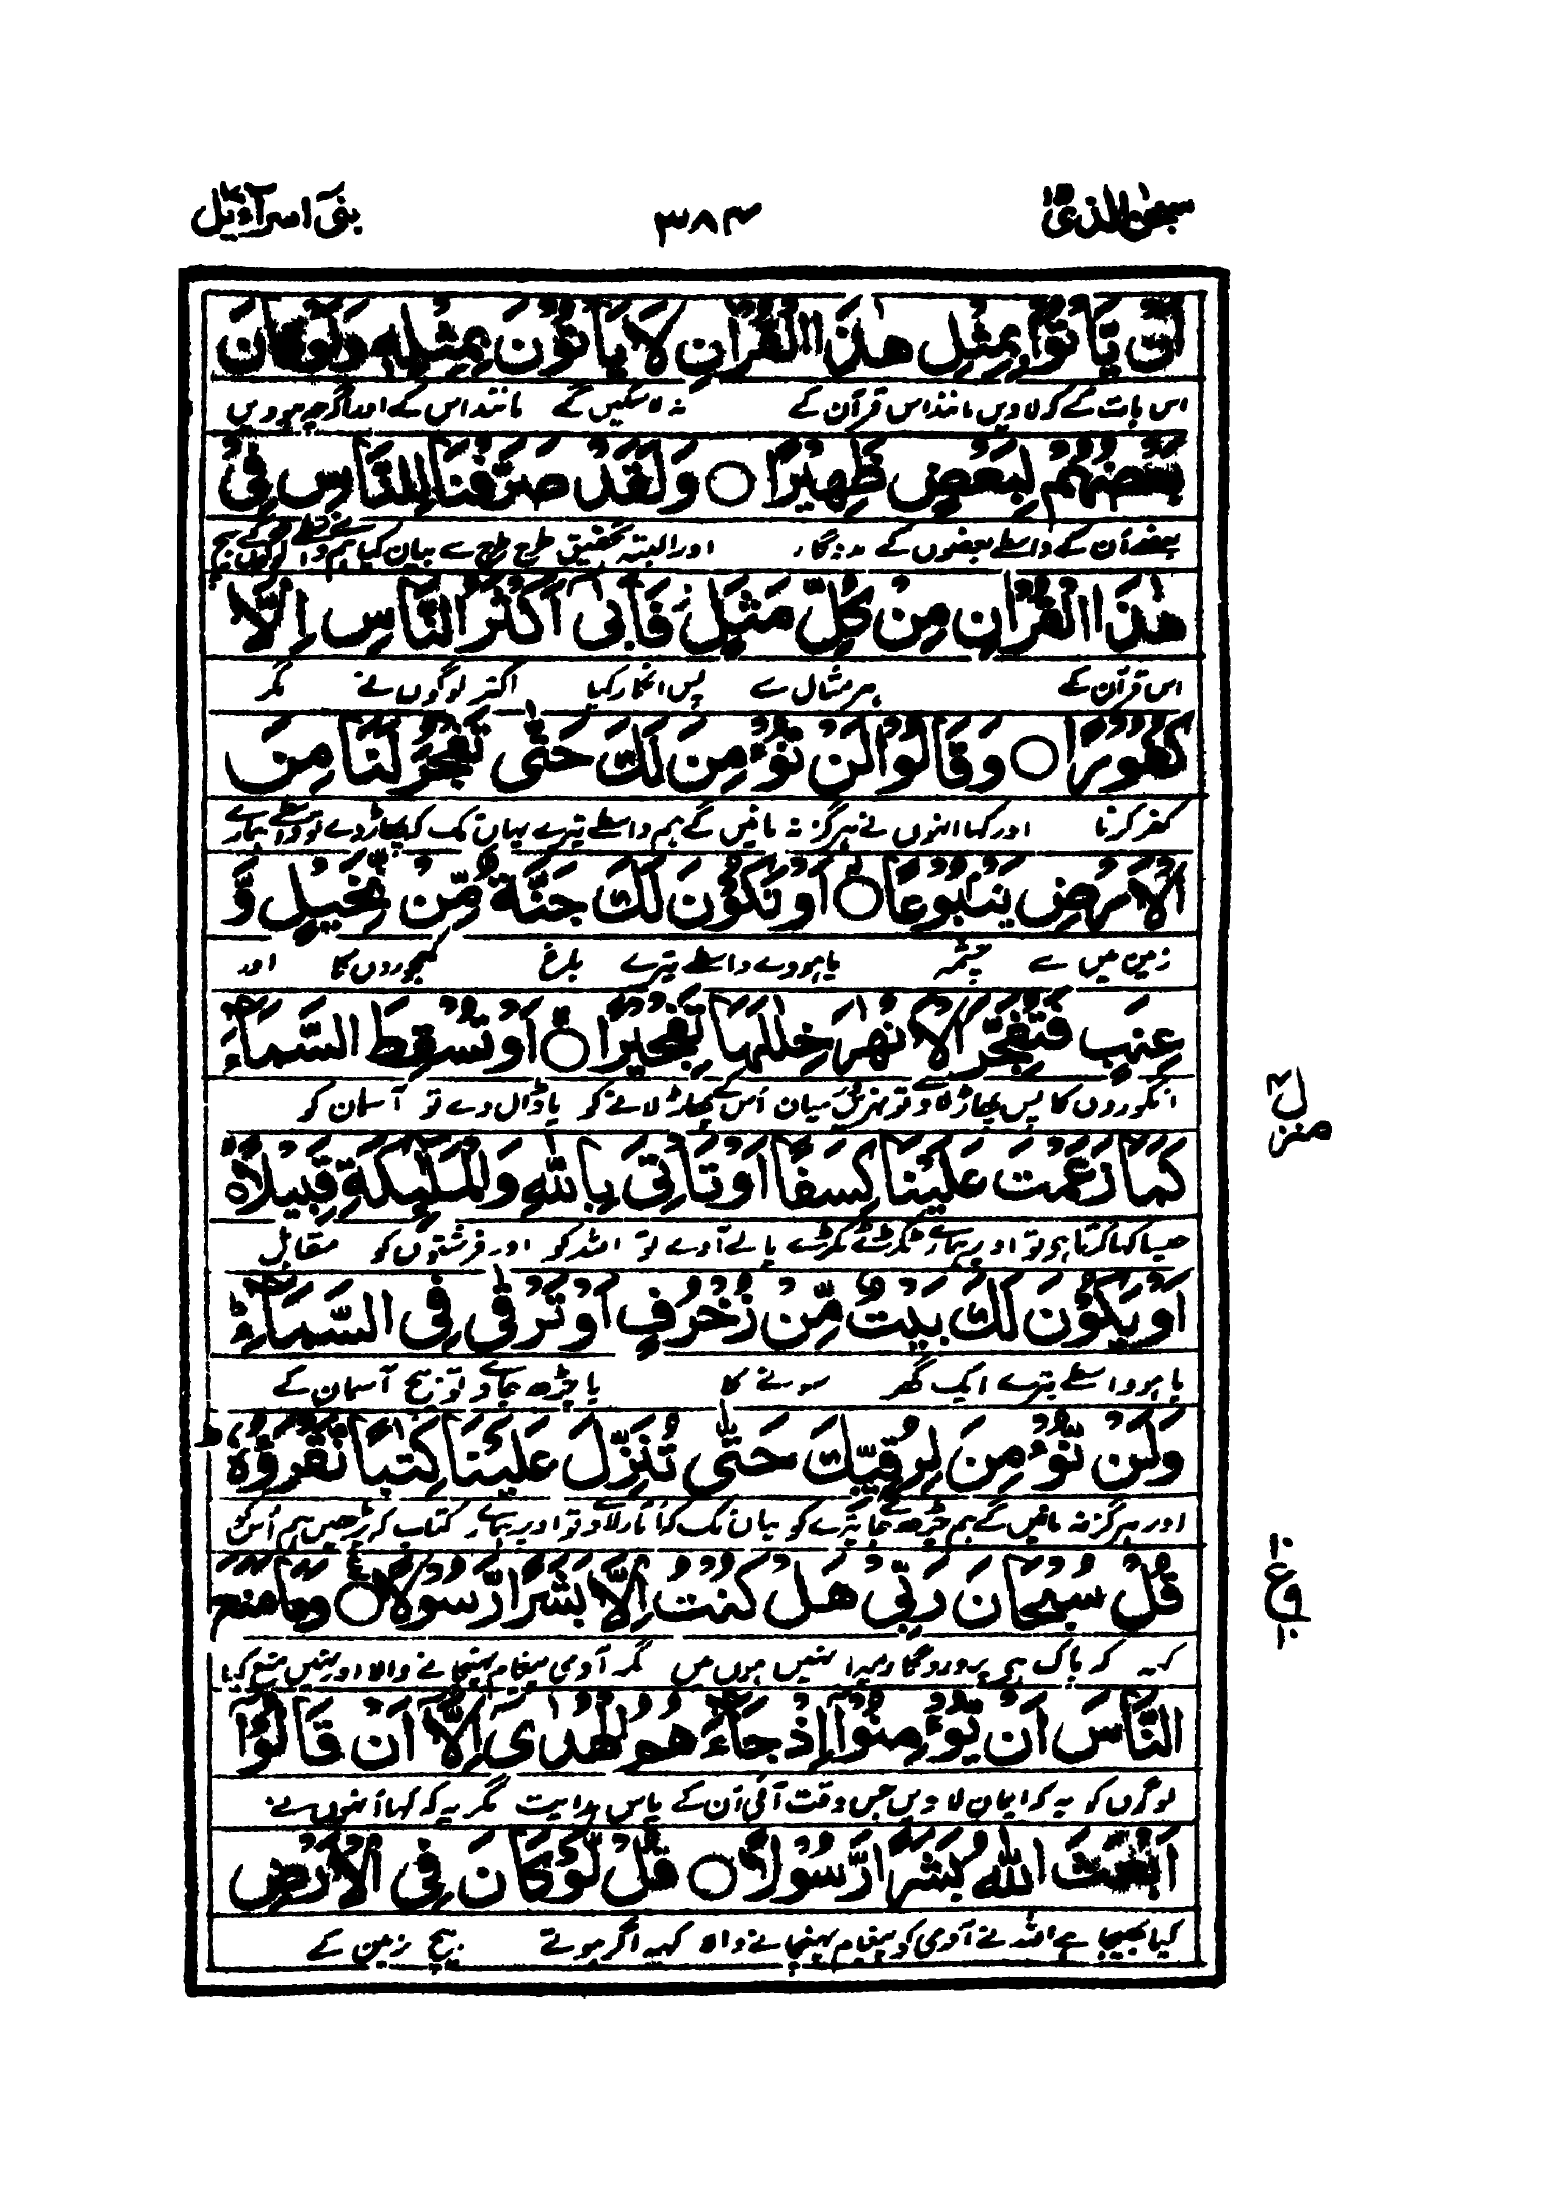 سبحن الذی ۱۵ ۳۸۴ بنی اسرآءیل ۱۷
اَنْ يَّاْتُوْا بِمِثْلِ هٰذَا الْقُرْاٰنِ لَا يَاْتُوْنَ بِمِثْلِهٖ وَلَوْ كَانَ
اس بات کے کہ لاویں مانند اس قرآن کے نہ لا سکیں گے مانند اس کے اور اگرچہ ہوویں
بَعْضُهُمْ لِبَعْضٍ ظَهِيْرًا ○ وَلَقَدْ صَرَّفْنَا لِلنَّاسِ فِيْ
بعضے اُن کے واسطے بعضوں کے مددگار اور البتہ تحقیق طرح طرح سے بیان کیا ہم نے واسطے لوگوں کے بیچ
هٰذَا الْقُرْاٰنِ مِنْ كُلِّ مَثَلٍ ؗ فَاَبٰى اَكْثَرُ النَّاسِ اِلَّا
اس قرآن کے ہر مثال سے پس انکار کیا اکثر لوگوں نے مگر
كُفُوْرًا ○ وَقَالُوْا لَنْ نُّؤْمِنَ لَكَ حَتّٰى تَفْجُرَ لَنَا مِنَ
کفر کرنا اور کہا انہوں نے ہرگز نہ مانیں گے ہم واسطے تیرے یہاں تک کہ پھاڑ دے تو واسطے ہمارے
الْاَرْضِ يَنْۢبُوْعًا ○ اَوْ تَكُوْنَ لَكَ جَنَّةٌ مِّنْ نَّخِيْلٍ وَّ
زمین میں سے چشمہ یا ہووے واسطے تیرے باغ کھجوروں کا اور
عِنَبٍ فَتُفَجِّرَ الْاَنْهٰرَ خِلٰلَهَا تَفْجِيْرًا ○ اَوْ تُسْقِطَ السَّمَآءَ
انگوروں کا پس پھاڑ لاوے تو نہریں درمیان اُس کے پھاڑ لانے کو یا ڈال دے تو آسمان کو
كَمَا زَعَمْتَ عَلَيْنَا كِسَفًا اَوْ تَاْتِيَ بِاللّٰهِ وَالْمَلٰٓئِكَةِ قَبِيْلًا ○
جیسا کہا کرتا ہے تو اوپر ہمارے ٹکڑے ٹکڑے یا لے آوے تو اللہ کو اور فرشتوں کو مقابل
اَوْ يَكُوْنَ لَكَ بَيْتٌ مِّنْ زُخْرُفٍ اَوْ تَرْقٰى فِي السَّمَآءِ ؕ
یا ہو واسطے تیرے ایک گھر سونے کا یا چڑھ جاوے تو بیچ آسمان کے
وَلَنْ نُّؤْمِنَ لِرُقِيِّكَ حَتّٰى تُنَزِّلَ عَلَيْنَا كِتٰبًا نَّقْرَؤُهٗ ؕ
اور ہرگز نہ مانیں گے ہم چڑھ جانے تیرے کو یہاں تک کہ اُتار لاوے تو اوپر ہمارے کتاب کہ پڑھیں ہم اُس کو
قُلْ سُبْحَانَ رَبِّيْ هَلْ كُنْتُ اِلَّا بَشَرًا رَّسُوْلًا ○ وَمَا مَنَعَ
کہہ کہ پاک ہے پروردگار میرا نہیں ہوں میں مگر آدمی پیغام پہنچانے والا اور نہیں منع کیا
النَّاسَ اَنْ يُّؤْمِنُوْٓا اِذْ جَآءَهُمُ الْهُدٰٓى اِلَّآ اَنْ قَالُوْٓا
لوگوں کو یہ کہ ایمان لاویں جس وقت آئی اُن کے پاس ہدایت مگر یہ کہ کہا اُنہوں نے
اَبَعَثَ اللّٰهُ بَشَرًا رَّسُوْلًا ○ قُلْ لَّوْ كَانَ فِي الْاَرْضِ
کیا بھیجا ہے اللہ نے آدمی کو پیغام پہنچانے والا کہہ اگر ہوتے بیچ زمین کے
منزل ۴
ع
۱۰